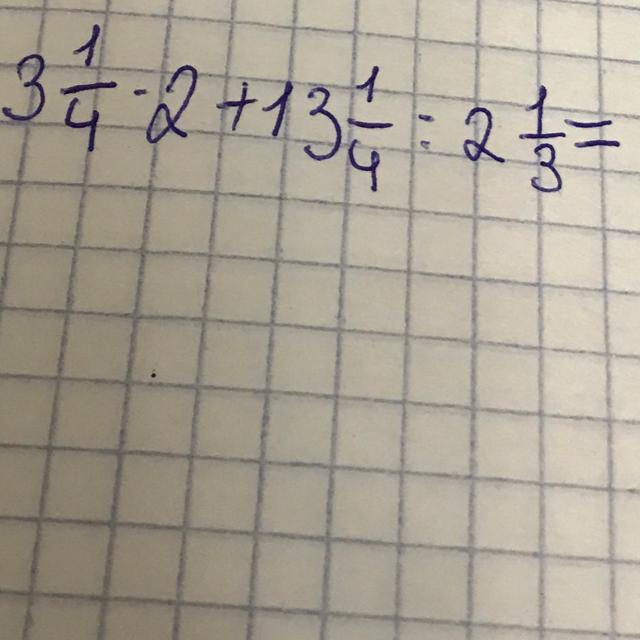 3 1/4 · 2 + 13 1/4 : 2 1/3 =